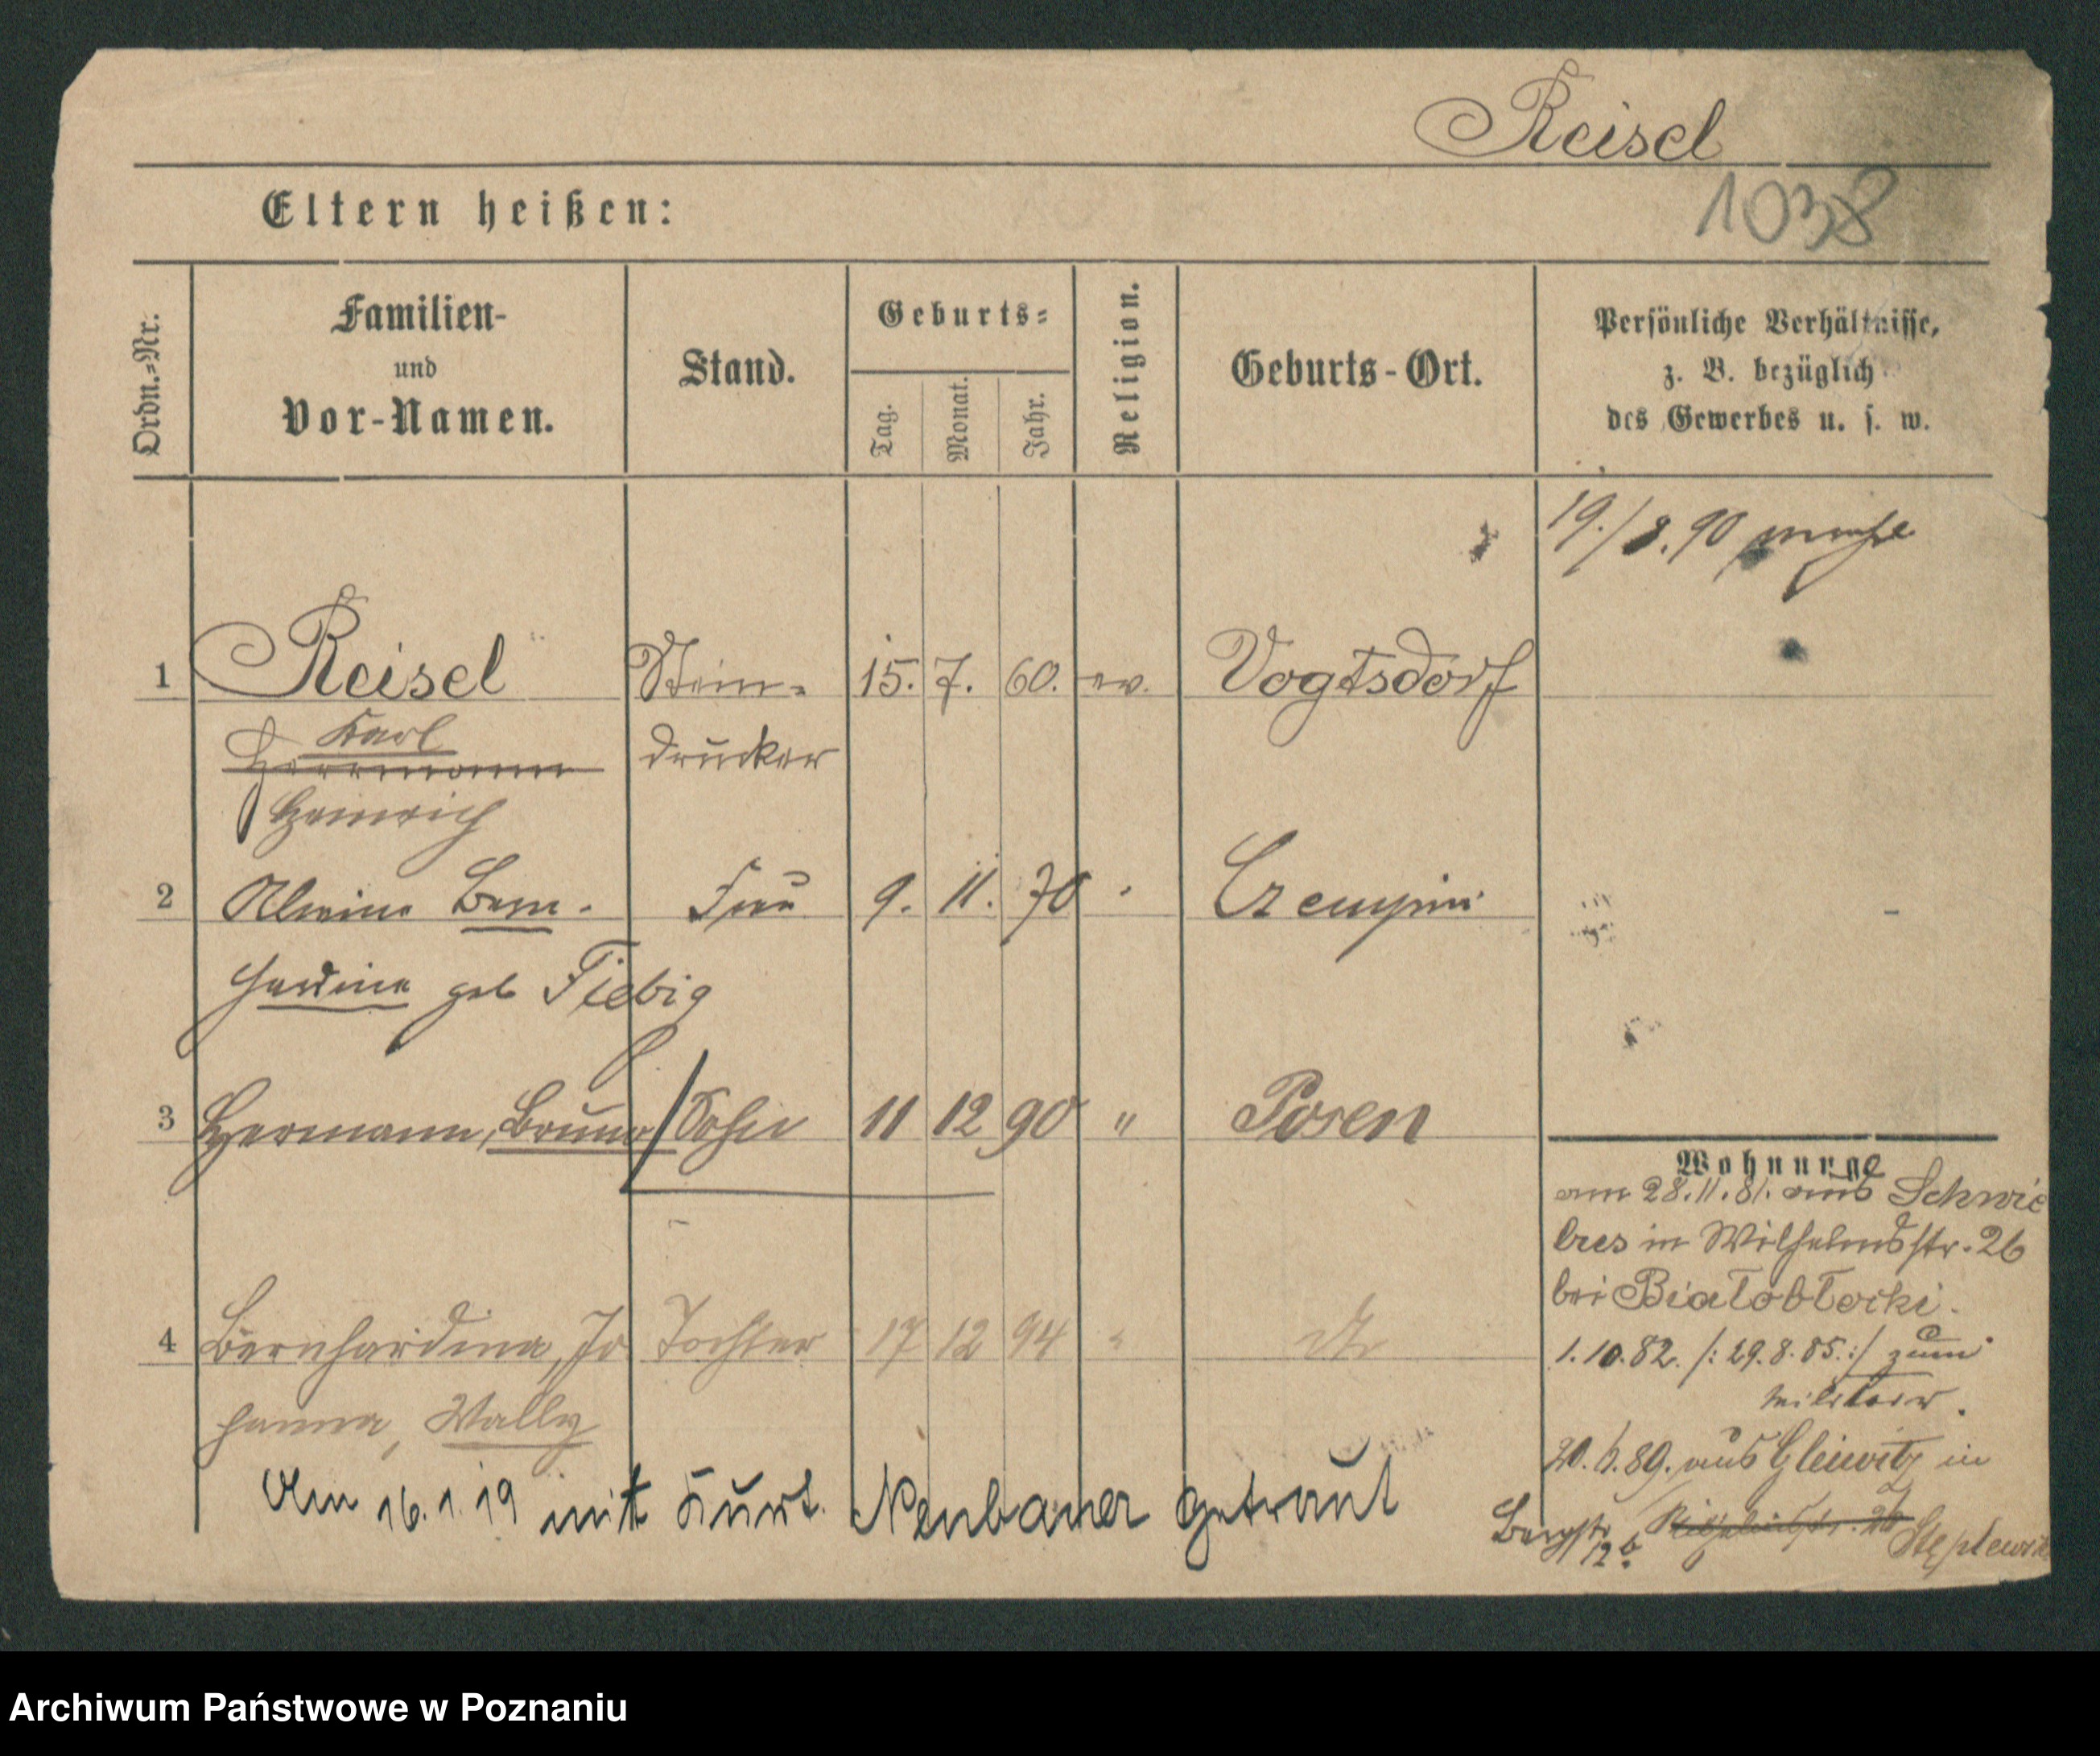 Reisel
1038
Eltern heißen:
Ordn.-Nr. Familien- und Vor-Namen. Stand. Geburts- Tag. Monat. Jahr. Religion. Geburts-Ort. Persönliche Verhältnisse, z. B. bezüglich des Gewerbes u. s. w.
19./8.90
1 Reisel Stein- 15. 7. 60. ev. Vogtsdorf
Karl
Herrmann drucker
Heinrich
2 Alwine Bern- Frau 9. 11. 70 " Czempin
hardine geb Fiebig
3 Hermann, Bruno / Sohn 11 12 90 " Posen
Wohnung
am 28.11.81. aus Schwie
bus in Wilhelmsstr. 26
bei Białobłocki.
4 Bernhardina, Jo Tochter 17 12 94 " dto
1.10.82. /: 29.8.85. :/ zum
Militair.
hanna, Wally
20.6.89. aus Gleiwitz in
Am 16.1.19 mit Kurt Neubauer getraut
Bergstr. 12b. Wilhelmstr. 26